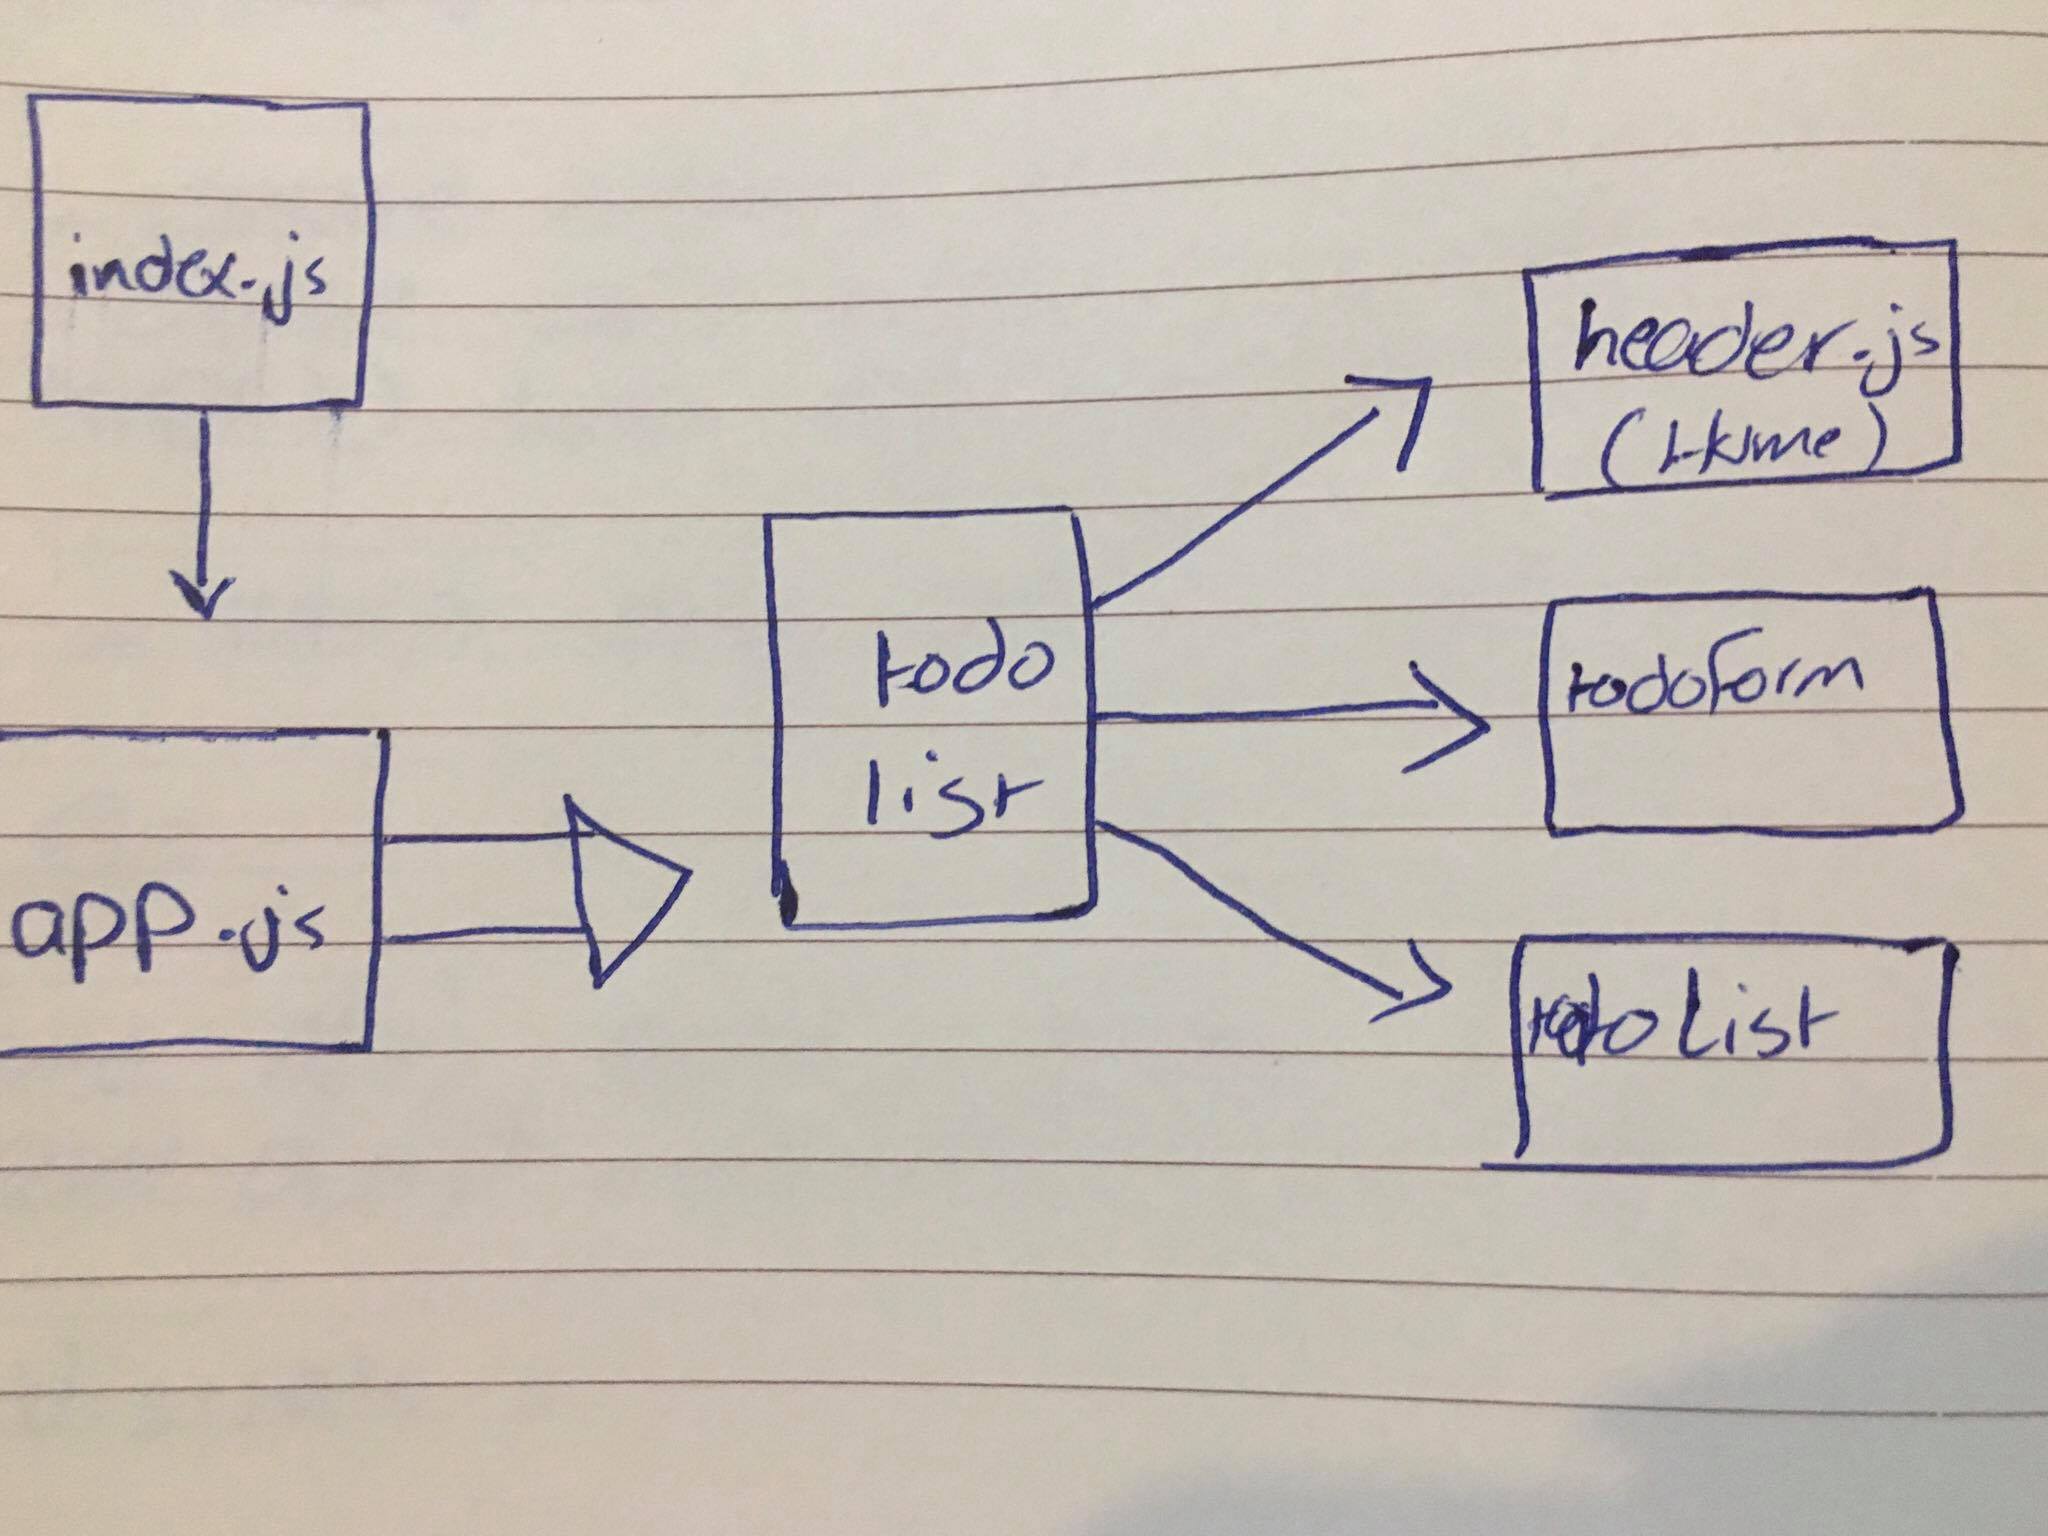 index.js
app.js
todo
list
header.js
todoForm
List